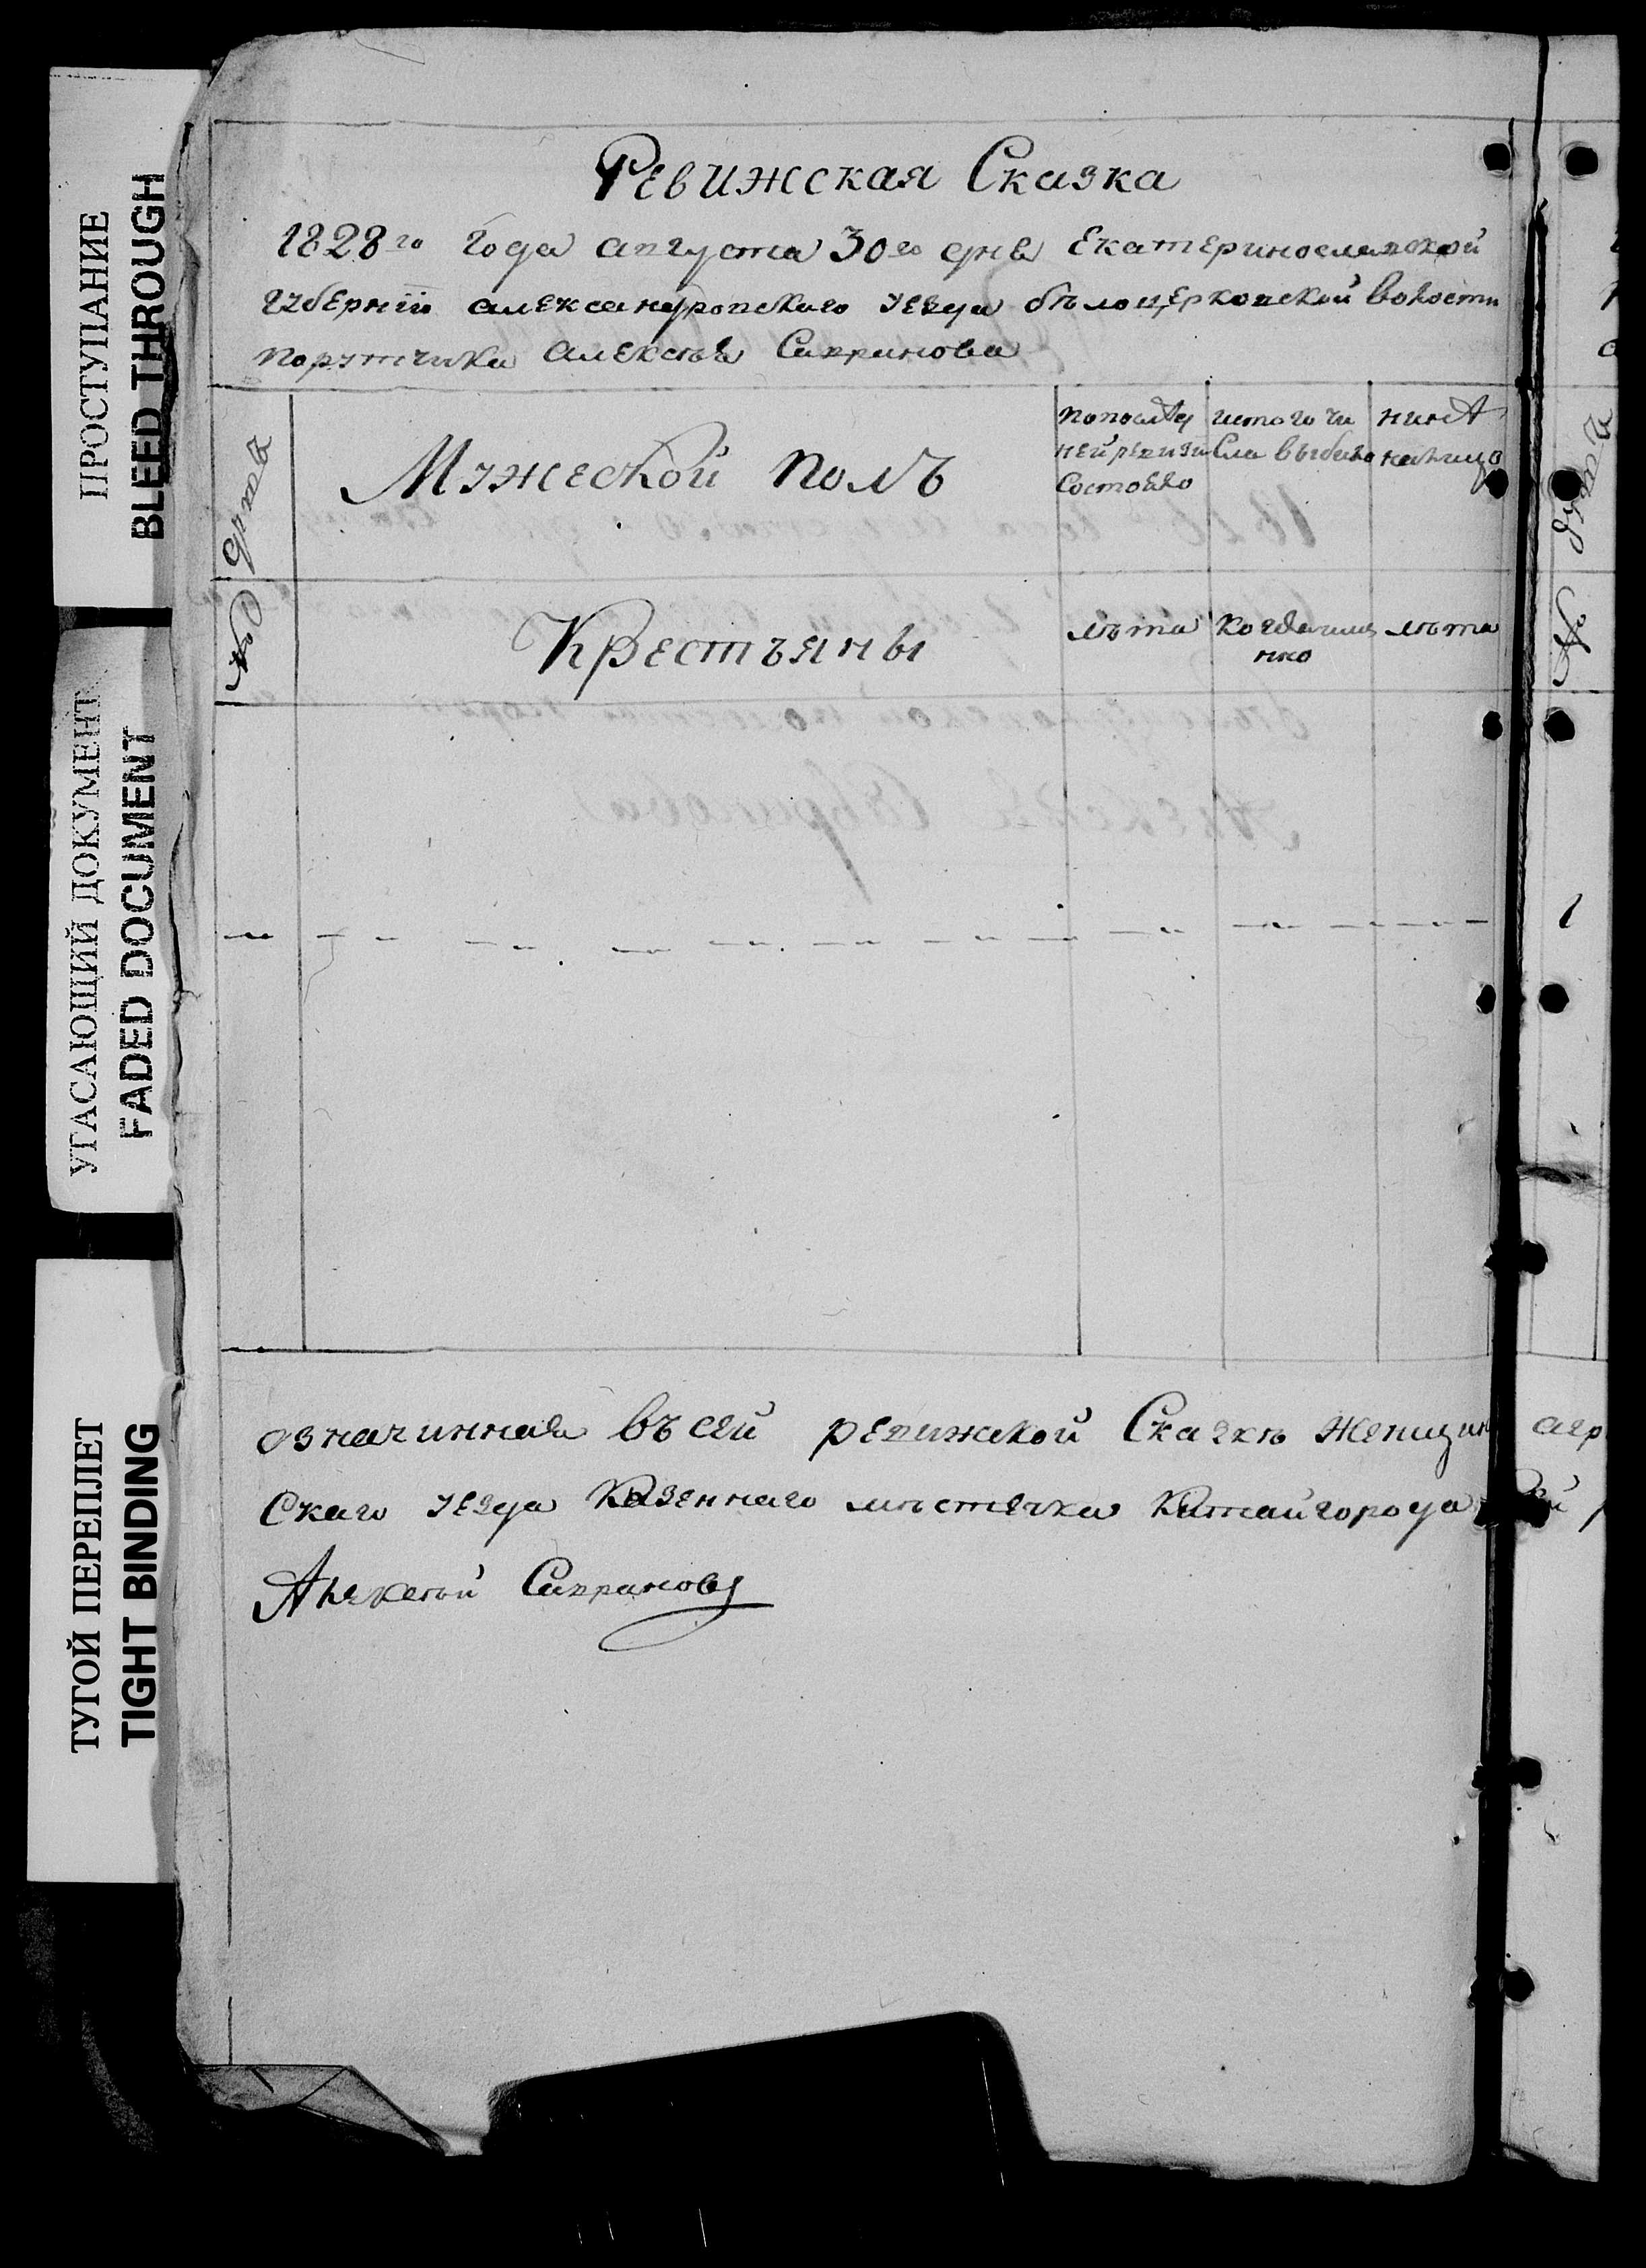 ПРОСТУПАНИЕ
BLEED THROUGH
УГАСАЮЩИЙ ДОКУМЕНТ
FADED DOCUMENT
ТУГОЙ ПЕРЕПЛЕТ
TIGHT BINDING
Ревижская Сказка
1828го Года августа 30го дня Екатеринославской
губернїи александровскаго уезда бѣлоцерковской волости
порутчика алексѣя Савранова
№ Дргов
Мужеской полъ
попослѣд
ней ревизи
Состояло
истого чи
Сла выбыло
нинѣ
налицо
Крестъяны
лѣта
Когдаимя
нно
лѣта
означинная въ сей ревижской Сказкѣ женщин
Скаго уезда Казеннаго мѣстечка Китайгорода
Алексѣй Савранов
№
1